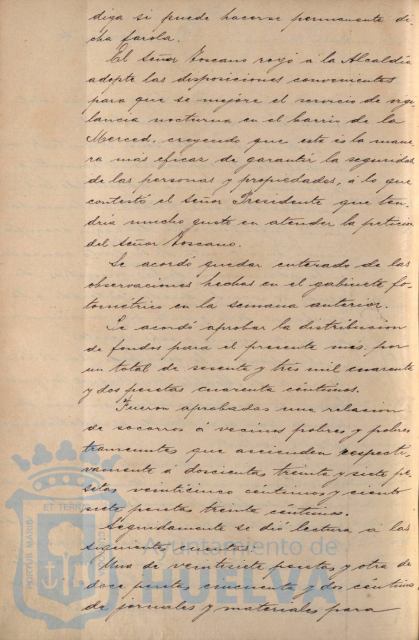 diga si puede hacerse permanente di-
cha farola.
El Señor Toscano rogó á la Alcaldia
adopte las disposiciones convenientes
para que se mejore el servicio de vigi-
lancia nocturna en el barrio de la
Merced, creyendo que este es la mane
ra mas eficaz de garantir la seguridad
de las personas y propiedades, á lo que
contestó el Señor Presidente que ten-
dria mucho gusto en atender la peticion
del Señor Toscano.
Se acordó quedar enterado de las
observaciones hechas en el gabinete fo-
tometrico en la semana anterior.
Se acordó aprobar la distribucion
de fondos para el presente mes por
un total de sesenta y tres mil cuarenta
y dos pesetas cuarenta céntimos.
Fueron aprobadas una relacion
de socorros á vecinos pobres y pobres
transeuntes que ascienden respecti-
vamente á doscientas treinta y siete pe-
setas veinticinco céntimos y ciento
siete pesetas treinta céntimos.
Seguidamente se dió lectura á las
siguientes cuentas:
Una de veintisiete pesetas y otra de
doce pesetas cincuenta y dos céntimos
de jornales y materiales para
ET TERRÆ
PORTUS MARIS
CUSTODIA
Ayuntamiento de
HUELVA